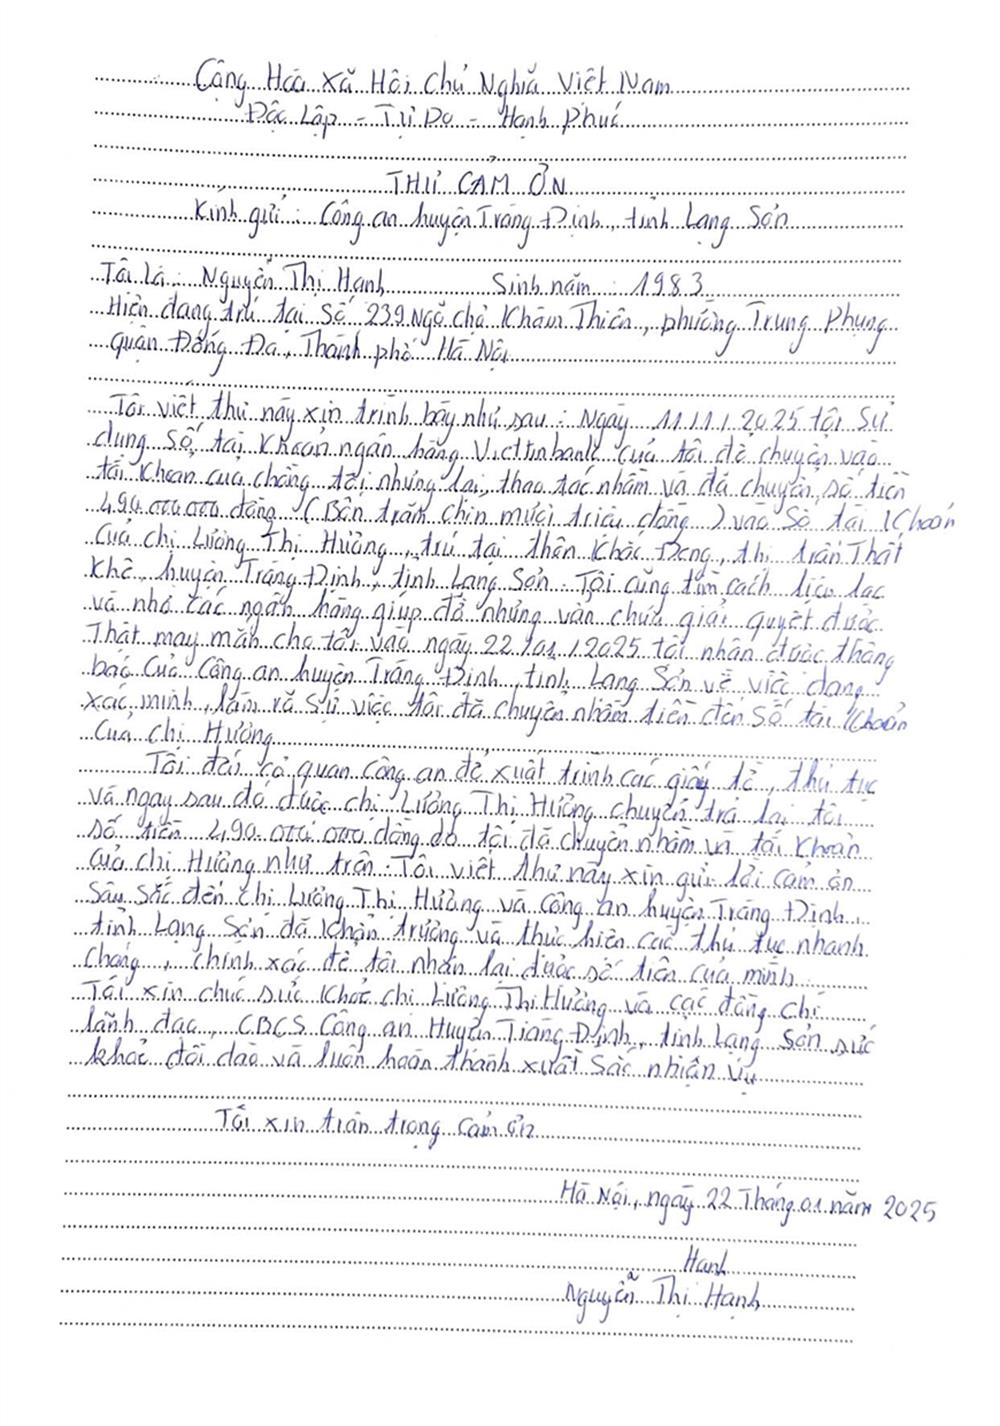 Cộng Hòa Xã Hội Chủ Nghĩa Việt Nam
Độc Lập - Tự Do - Hạnh Phúc
THƯ CẢM ƠN
Kính gửi: Công an huyện Tràng Định, tỉnh Lạng Sơn
Tôi là: Nguyễn Thị Hạnh Sinh năm: 1983
Hiện đang trú tại Số 239 Ngõ chợ Khâm Thiên, phường Trung Phụng
quận Đống Đa, Thành phố Hà Nội
Tôi viết thư này xin trình bày như sau: Ngày 11/1/2025 tôi Sử
dụng Số tài khoản ngân hàng Viettinbank của tôi để chuyển vào
tài khoản của chồng tôi nhưng lại thao tác nhầm và đã chuyển số tiền
490.000.000 đồng (Bốn trăm chín mươi triệu đồng) vào Số tài khoản
của chị Lương Thị Hường, trú tại thôn Khắc Đeng, thị trấn Thất
Khê, huyện Tràng Định, tỉnh Lạng Sơn. Tôi cũng tìm cách liên lạc
và nhờ các ngân hàng giúp đỡ nhưng vẫn chưa giải quyết được.
Thật may mắn cho tôi vào ngày 22/01/2025 tôi nhận được thông
báo của Công an huyện Tràng Định, tỉnh Lạng Sơn về việc đang
xác minh, làm rõ Sự việc tôi đã chuyển nhầm tiền đến Số tài khoản
Của chị Hường
Tôi đến cơ quan Công an để xuất trình các giấy tờ, thủ tục
và ngay sau đó được chị Lương Thị Hường chuyển trả lại tôi
số tiền 490.000.000 đồng do tôi đã chuyển nhầm và tài khoản
của chị Hường như trên. Tôi viết thư này xin gửi lời cảm ơn
Sâu Sắc đến chị Lương Thị Hường và Công an huyện Tràng Định,
tỉnh Lạng Sơn đã khẩn trương và thực hiện các thủ tục nhanh
chóng, chính xác để tôi nhận lại được số tiền của mình.
Tôi xin chúc sức khỏe chị Lương Thị Hường và các đồng chí
lãnh đạo, CBCS Công an Huyện Tràng Định, tỉnh Lạng Sơn sức
khỏe dồi dào và luôn hoàn thành xuất Sắc nhiệm vụ
Tôi xin trân trọng cảm ơn
Hà Nội, ngày 22 Tháng 01 năm 2025
Hạnh
Nguyễn Thị Hạnh